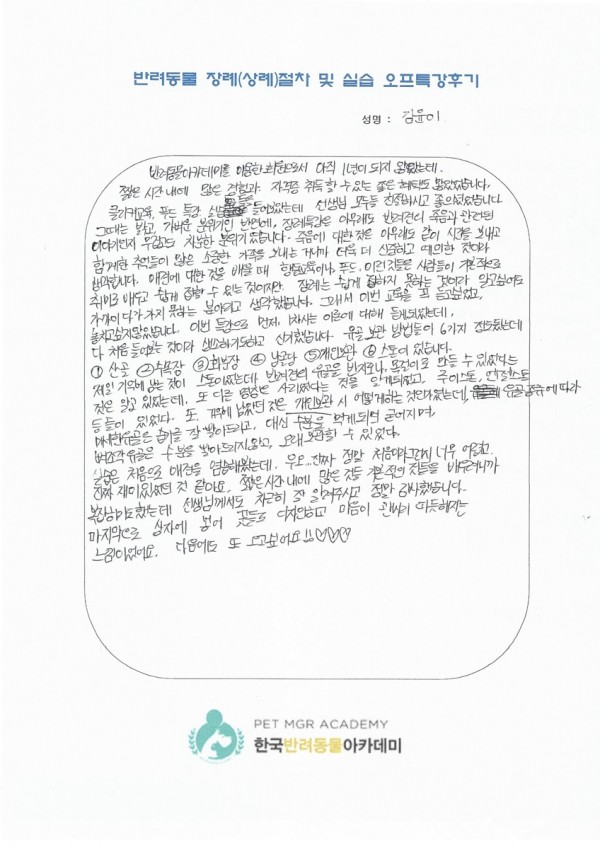 반려동물 장례(상례)절차 및 실습 오프특강후기
성명 : 김윤이
반려동물아카데미를 이용한 회원으로서 아직 1년이 되지 않았는데.
짧은 시간 내에 많은 경험과 자격증 취득 할 수 있는 좋은 혜택도 많았었습니다.
클리커교육, 푸드 특강 들을 들어보았는데 선생님 모두들 친절하시고 좋으셨었습니다.
그때는 밝고, 가벼운 분위기인 반면에, 장례특강은 아무래도 반려견이 죽음과 관련된
이야기인지 무겁고도 차분한 분위기였습니다. 죽음에 대한 것은 아무래도 같이 시간을 보내고
함께한 추억들이 많은 소중한 가족을 보내는 거니까 더욱 더 신중하고 예의한 것이라
생각합니다. 애견에 대한 것을 배울 때 행동교육이나, 푸드, 이런것들은 사람들이 기본적으로
취미로 배우고 쉽게 접할 수 있는 것이지만, 장례는 쉽게 접하지 못하는 것이라 알고싶어도
가까이 다가가지 못하는 분야라고 생각했습니다. 그래서 이번 교육을 꼭 듣고싶었고,
놓치고싶지않았습니다. 이번 특강으로 먼저, 1차시는 이론에 대해 듣게되었는데,
다 처음 들어보는 것이라 생소하기도하고 신기했습니다. 유골 보관 방법들이 6가지 정도됐는데
① 산골 ② 수목장 ③ 화분장 ④ 납골당 ⑤ 개인보관 ⑥ 스톤이 있었습니다.
제일 기억에 남는 것이 스톤이었는데 반려견의 유골을 반지로나, 목걸이로 만들 수 있었다는
것은 알고 있었는데, 또 다른 명칭은 사리였다는 것을 알게되었고, 루이스톤, 엔젤스톤
등등이 있었다. 또, 기억에 남았던 것은 개인보관 시 어떻게하는 것인가였는데, 유골 종류에 따라
미세한유골은 습기를 잘 빨아드리고, 대신 수분을 먹게되면 굳어지며,
뼈조각유골은 수분을 빨아드리지않고, 오래보관할 수 있었다.
실습은 처음으로 애견을 염습해보았는데, 우오...진짜 정말 처음이라그런지 너무 어렵고
진짜 재미있었던 것 같아요. 짧은시간 내에 많은 것들 기본적인 것들을 배우려니까
복잡하기도했는데 선생님께서도 차근히 잘 알려주시고 정말 감사했습니다.
마지막으로 상자에 넣어 꽃들로 디자인하고 마음이 괜시리 따뜻해지는
느낌이었어요. 다음에도 또 오고싶어요!! ♡♡♡
PET MGR ACADEMY
한국반려동물아카데미